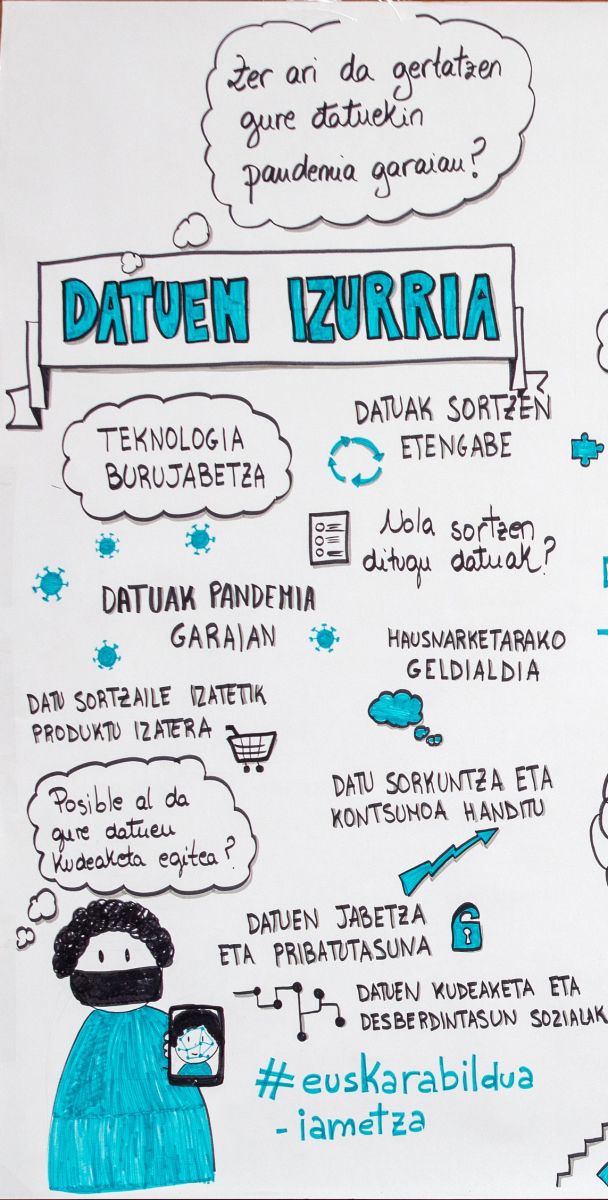 Zer ari da gertatzen
gure datuekin
pandemia garaian?
DATUEN IZURRIA
TEKNOLOGIA
BURUJABETZA
DATUAK SORTZEN
ETENGABE
Nola sortzen
ditugu datuak?
DATUAK PANDEMIA
GARAIAN
HAUSNARKETARAKO
GELDIALDIA
DATU SORTZAILE IZATETIK
PRODUKTU IZATERA
DATU SORKUNTZA ETA
KONTSUMOA HANDITU
Posible al da
gure datuen
kudeaketa egitea?
DATUEN JABETZA
ETA PRIBATUTASUNA
DATUEN KUDEAKETA ETA
DESBERDINTASUN SOZIALAK
#euskarabildua
-iametza